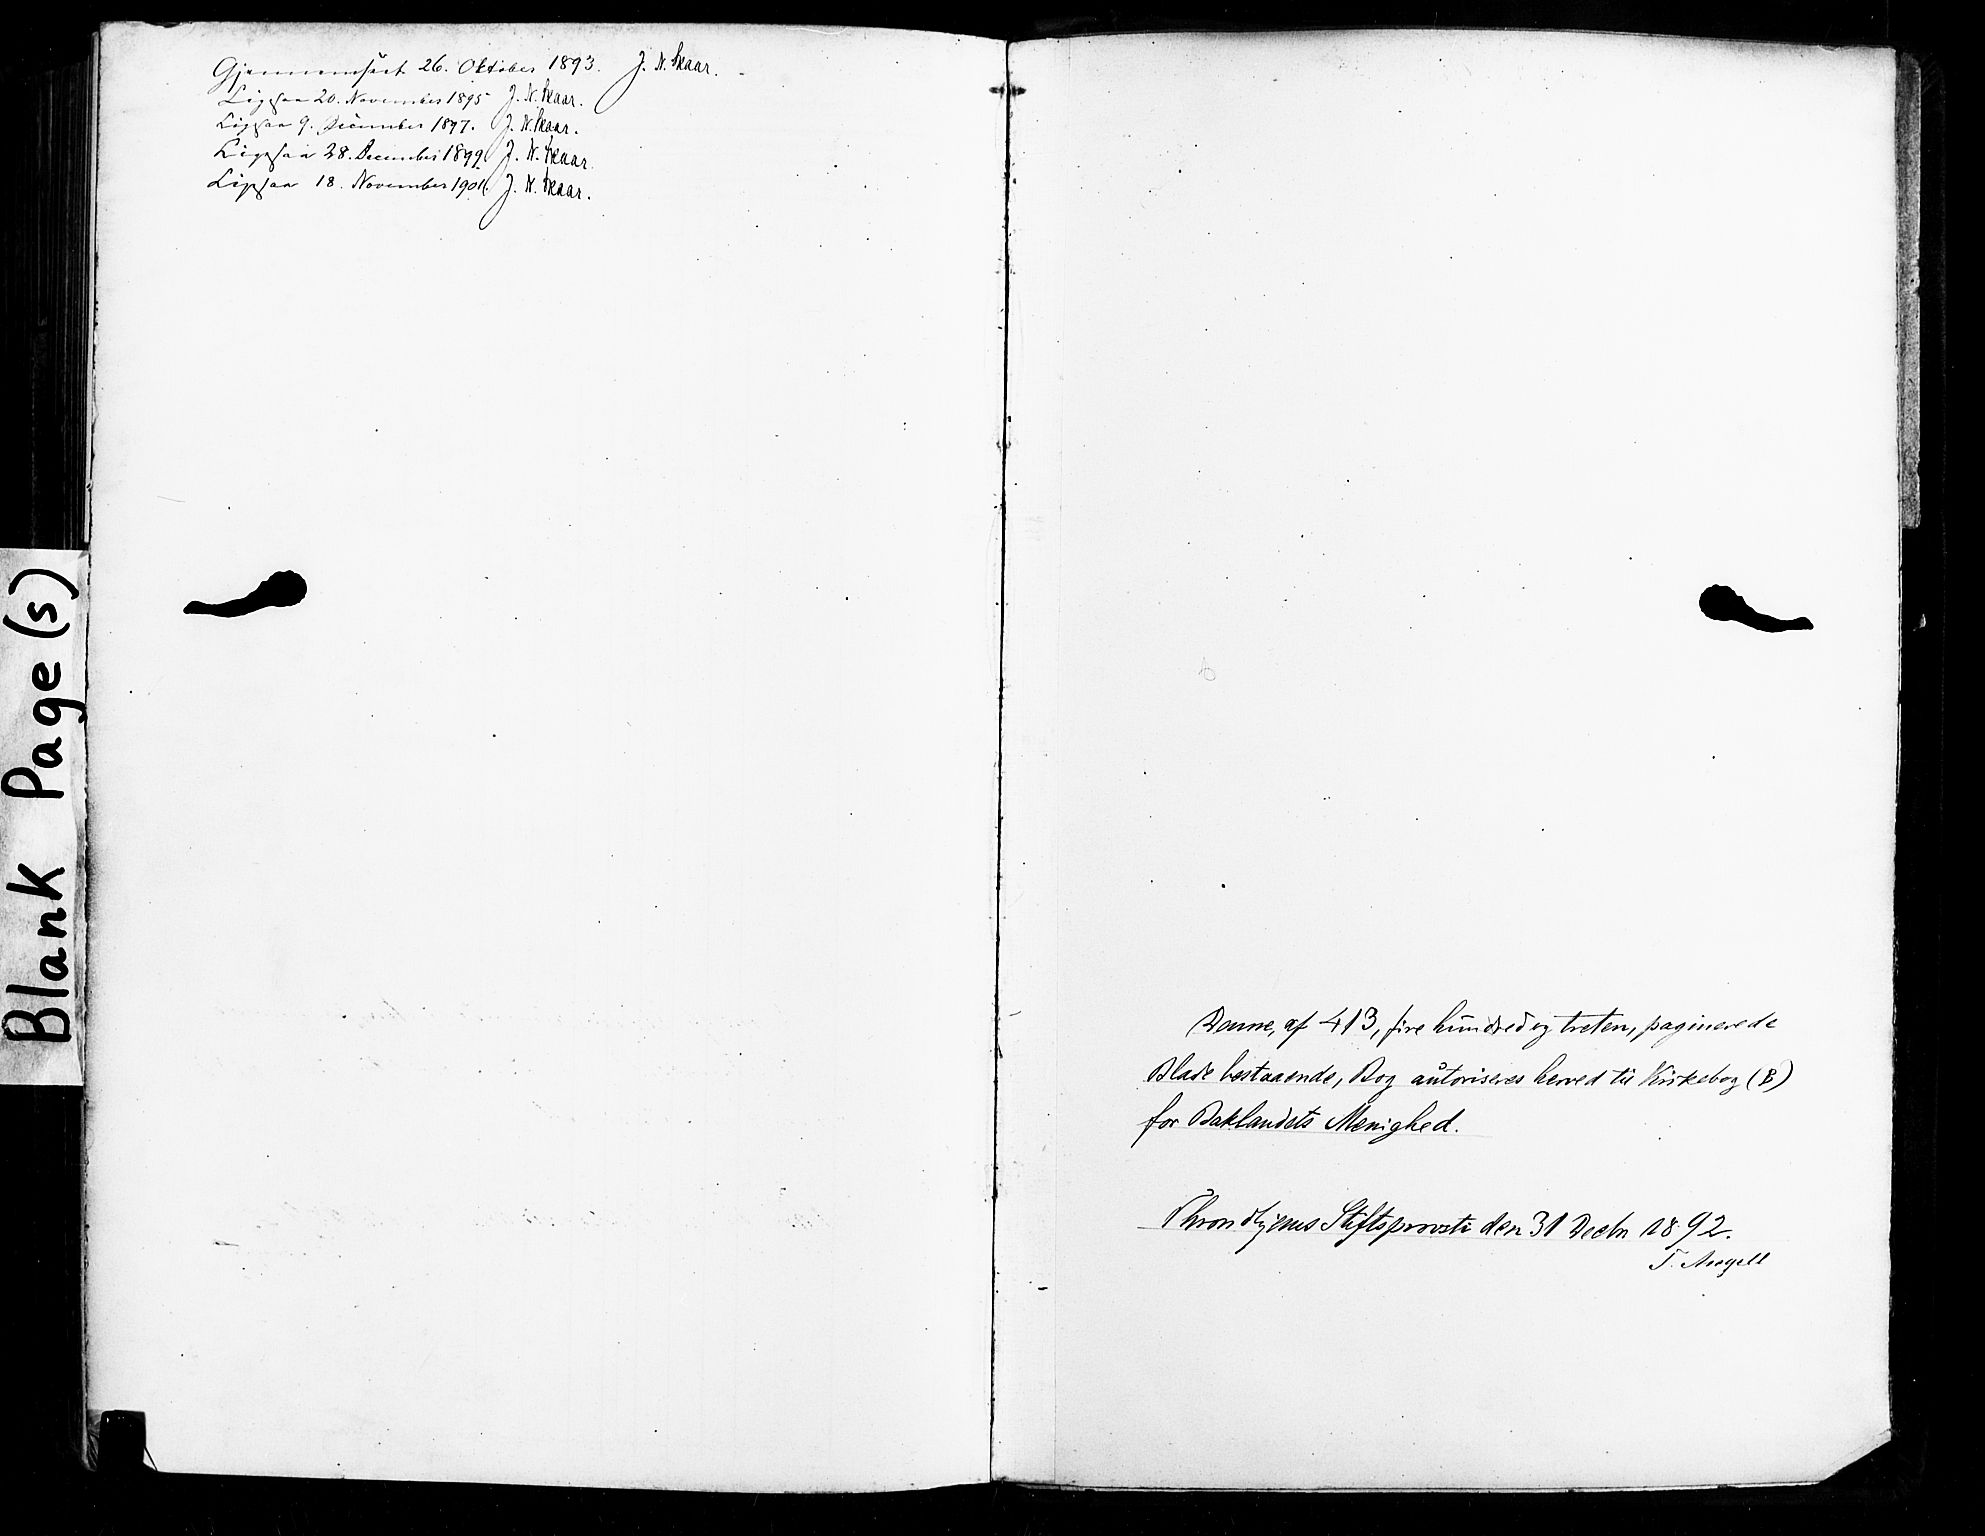 Blank Page(s)
Gjennemseet 26. Oktober 1893. J. N. Skaar.
Ligesaa 20. November 1895 J. N. Skaar.
Ligesaa 9. December 1897. J. N. Skaar.
Ligesaa 28. December 1899. J. N. Skaar.
Ligesaa 18. November 1901. J. N. Skaar.
Denne, af 413, fire hundred og tretten, paginerede
Blade bestaaende, Bog autoriseres herved til Kirkebog (B)
for Baklandets Menighed.
Throndhjems Stiftsprovsti den 31 Decbr 1892.
T. Angell